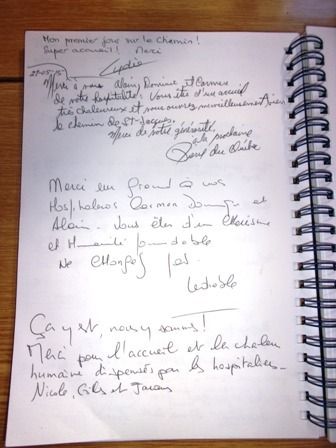 Mon premier jour sur le Chemin!
Super accueil! Merci
Lydie
Merci à vous Alain, Dominic et Carmen
de votre hospitalité. Vous êtes d'un accueil
très chaleureux et vous ouvrez merveilleusement bien
le chemin de St-Jacques.
Merci de votre générosité
à la prochaine
du Québec
Merci en Grand à vos
Hospitaleros Carmen Dominge et
Alain. Vous êtes d'un
et Humanité formidable
ne changez pas.
Ça y est, nous y sommes!
Merci pour l'accueil et la chaleur
humaine dispensés par les hospitaliers_
Nicole, Gilles et